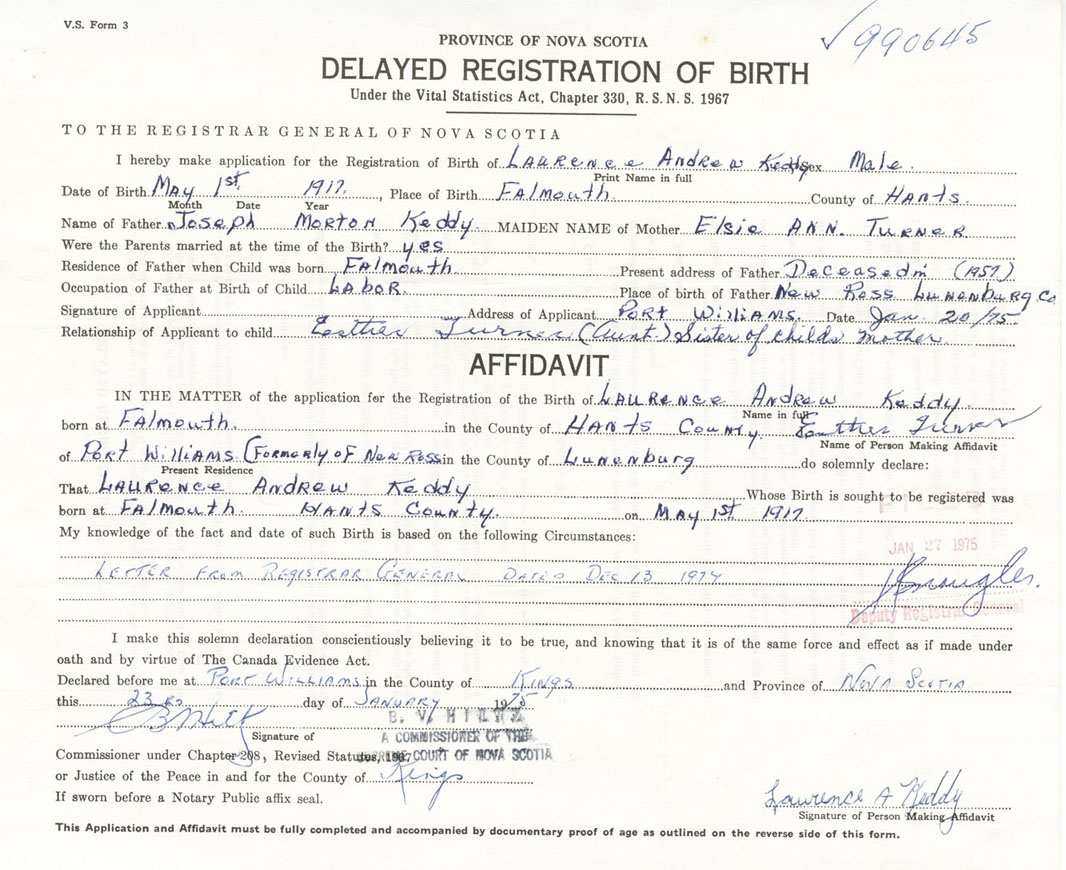 V.S. Form 3
✓990645
PROVINCE OF NOVA SCOTIA
DELAYED REGISTRATION OF BIRTH
Under the Vital Statistics Act, Chapter 330, R. S. N. S. 1967
TO THE REGISTRAR GENERAL OF NOVA SCOTIA
I hereby make application for the Registration of Birth of LAURENCE ANDREW Keddy Sex Male.
Print Name in full
Date of Birth MAY 1st 1917, Place of Birth FALMOUTH County of HANTS.
Month Date Year
Name of Father Joseph MORTON Keddy MAIDEN NAME of Mother Elsie ANN. TURNER
Were the Parents married at the time of the Birth? yes
Residence of Father when Child was born FALMOUTH Present address of Father Deceased (1957)
Occupation of Father at Birth of Child LABOR Place of birth of Father New Ross Lunenburg Co
Signature of Applicant Address of Applicant PORT WILLIAMS. Date Jan. 20/75.
Relationship of Applicant to child Esther Turner (Aunt) Sister of childs mother
AFFIDAVIT
IN THE MATTER of the application for the Registration of the Birth of LAURENCE ANDREW Keddy
Name in full
born at FALMOUTH. in the County of HANTS COUNTY. Esther Turner
Name of Person Making Affidavit
of PORT WILLIAMS (Formerly of New Ross in the County of Lunenburg do solemnly declare:
Present Residence
That LAURENCE ANDREW Keddy Whose Birth is sought to be registered was
born at FALMOUTH. HANTS COUNTY. on MAY 1st 1917.
My knowledge of the fact and date of such Birth is based on the following Circumstances:
JAN 27 1975
LETTER FROM REGISTRAR GENERAL DATED DEC 13 1974
Deputy Registrar General
I make this solemn declaration conscientiously believing it to be true, and knowing that it is of the same force and effect as if made under
oath and by virtue of The Canada Evidence Act.
Declared before me at PORT WILLIAMS in the County of KINGS and Province of NOVA SCOTIA
this 23 RD day of JANUARY 1975
B. V. HILTZ
Signature of A COMMISSIONER OF THE
Commissioner under Chapter 208, Revised Statutes, 1967 COURT OF NOVA SCOTIA
or Justice of the Peace in and for the County of Kings
If sworn before a Notary Public affix seal.
Laurence A Keddy
Signature of Person Making Affidavit
This Application and Affidavit must be fully completed and accompanied by documentary proof of age as outlined on the reverse side of this form.